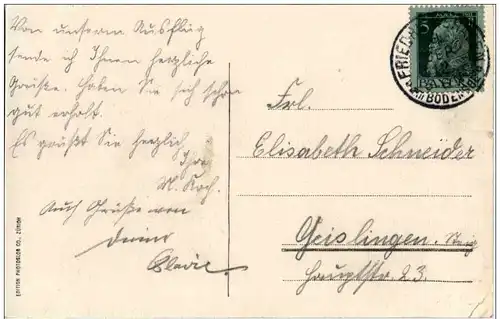 Von unserm Ausflug
sende ich Ihnen herzliche
Grüße. Haben Sie sich schon
gut erholt.
Es grüßt Sie herzlich
Ihre
M. Koch.
Auch Grüße von
Deine
Frl.
Elisabeth Schneider
Geislingen.
Hauptstr. 23.
5
BAYERN
AM BODENSEE
EDITION PHOTOGLOB CO., ZÜRICH